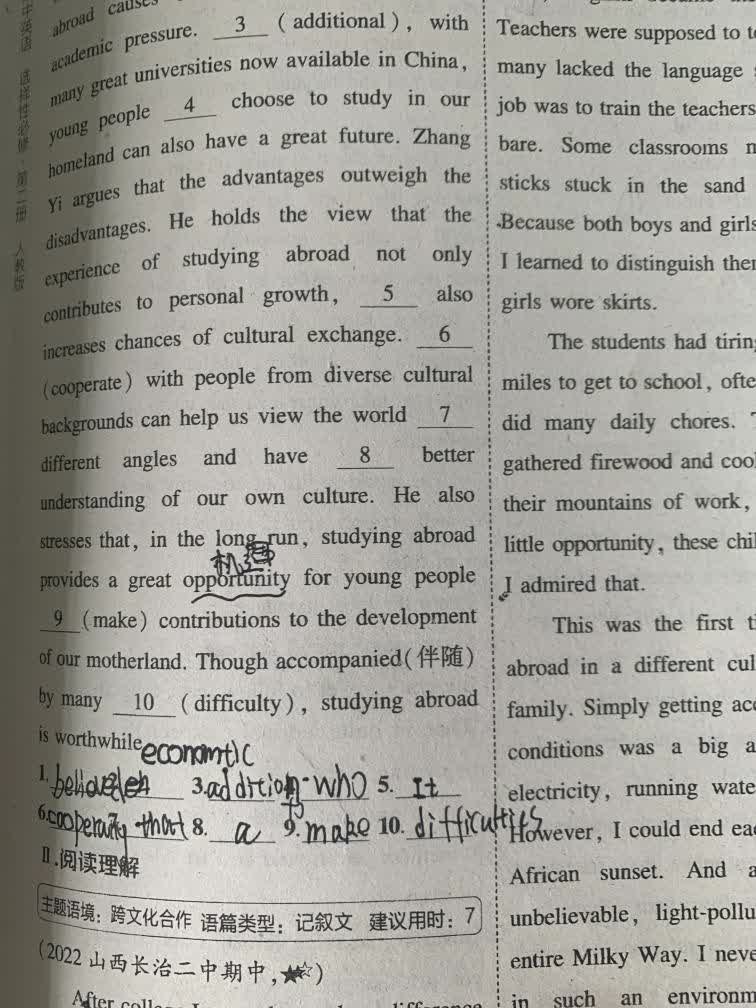 中英语 选择性必修 第二册 人教版
abroad causes
academic pressure. 3 (additional), with
many great universities now available in China,
young people 4 choose to study in our
homeland can also have a great future. Zhang
Yi argues that the advantages outweigh the
disadvantages. He holds the view that the
experience of studying abroad not only
contributes to personal growth, 5 also
increases chances of cultural exchange. 6
(cooperate) with people from diverse cultural
backgrounds can help us view the world 7
different angles and have 8 better
understanding of our own culture. He also
stresses that, in the long run, studying abroad
机遇
provides a great opportunity for young people
9 (make) contributions to the development
of our motherland. Though accompanied(伴随)
by many 10 (difficulty), studying abroad
is worthwhile.
economtic
1. 3. addition who 5. It
to
6. cooperating that 8. a 9. make 10. difficulties
Ⅱ.阅读理解
主题语境:跨文化合作 语篇类型:记叙文 建议用时:7
(2022山西长治二中期中,★☆)
After
Teachers were supposed to
many lacked the language
job was to train the teachers
bare. Some classrooms
sticks stuck in the sand
Because both boys and girls
I learned to distinguish
girls wore skirts.
The students had
miles to get to school,
did many daily chores.
gathered firewood and
their mountains of work,
little opportunity, these
I admired that.
This was the first
abroad in a different
family. Simply getting
conditions was a big
electricity, running
However, I could end
African sunset. And
unbelievable,
entire Milky Way. I
in such an